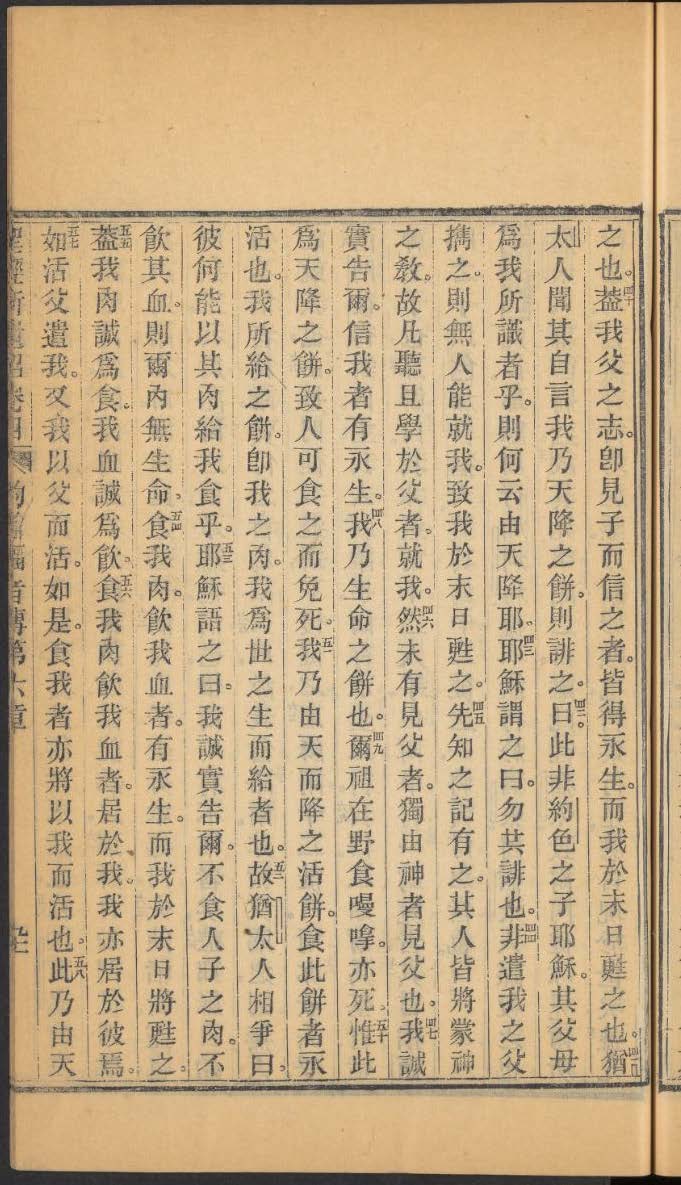 之也。四十蓋我父之志。卽見子而信之者。皆得永生。而我於末日甦之也。四一猶
太人聞其自言我乃天降之餅。則誹之。四二曰。此非約色之子耶穌。其父母
爲我所識者乎。則何云由天降耶。四三耶穌謂之曰。勿其誹也。四四非遣我之父
擕之。則無人能就我。致我於末日甦之。四五先知之記有之。其人皆將蒙神
之敎。故凡聽且學於父者。就我。四六然未有見父者。獨由神者見父也。四七我誠
實告爾。信我者有永生。四八我乃生命之餅也。四九爾祖在野食嘜嗱。亦死。五十惟此
爲天降之餅。致人可食之而免死。五一我乃由天而降之活餅。食此餅者永
活也。我所給之餅。卽我之肉。我爲世之生而給者也。五二故猶太人相爭曰。
彼何能以其肉給我食乎。五三耶穌語之曰。我誠實告爾。不食人子之肉。不
飮其血。則爾內無生命。五四食我肉。飮我血者。有永生。而我於末日將甦之。
五五蓋我肉誠爲食。我血誠爲飮。五六食我肉飮我血者。居於我。我亦居於彼焉。
五七如活父遣我。又我以父而活。如是。食我者亦將以我而活也。五八此乃由天
聖經新遺詔卷四 約翰福音傳第六章